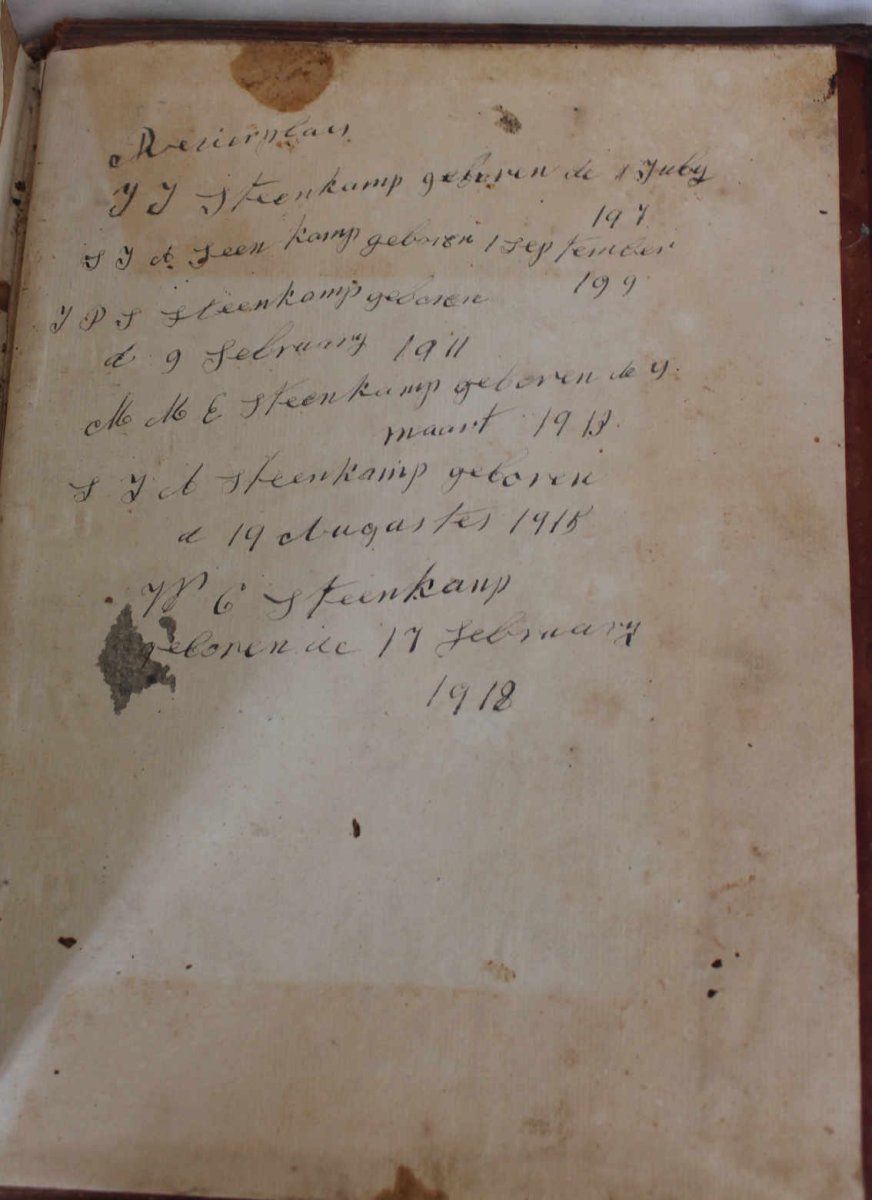 Revierplaas
J J Steenkamp geboren de 1 Juby
197
S J A Seenkamp geboren 1 September
199
J P S Steenkamp geboren
d 9 February 1911
M M E Steenkamp geboren de 9
maart 1913
S J A Steenkamp geboren
d 19 Augastes 1915
W C Steenkamp
geboren de 17 February
1918